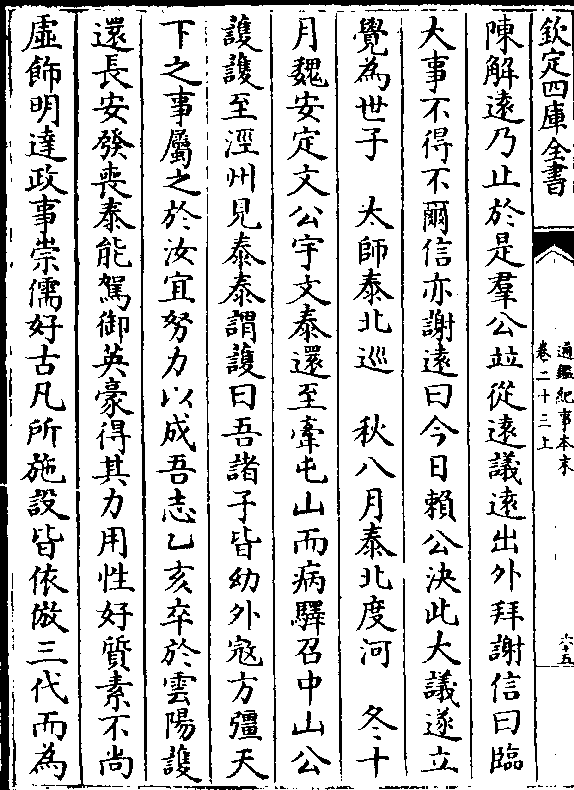 欽定四庫全書
通鑑紀事本末
卷二十三上
六十五
陳解遠乃止於是羣公並從遠議遠出外拜謝信曰臨
大事不得不爾信亦謝遠曰今日賴公決此大議遂立
覺為世子 太師泰北巡 秋八月泰北度河 冬十
月魏安定文公宇文泰還至牽屯山而病驛召中山公
護護至涇州見泰泰謂護曰吾諸子皆幼外寇方彊天
下之事屬之於汝宜努力以成吾志乙亥卒於雲陽護
還長安發喪泰能駕御英豪得其力用性好質素不尚
虛飾明達政事崇儒好古凡所施設皆依倣三代而為